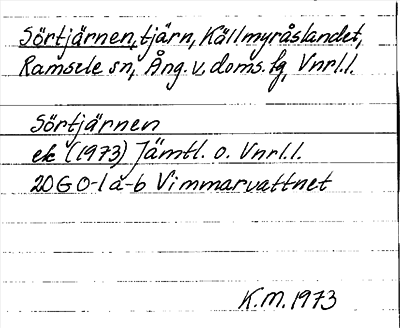 Sörtjärnen, tjärn, Källmyråslandet,
Ramsele sn, Ång. v. doms. fg, Vnrl.l.
Sörtjärnen
ek (1973) Jämtl. o. Vnrl.l.
20G 0-1 a-b Vimmarvattnet
K.M. 1973